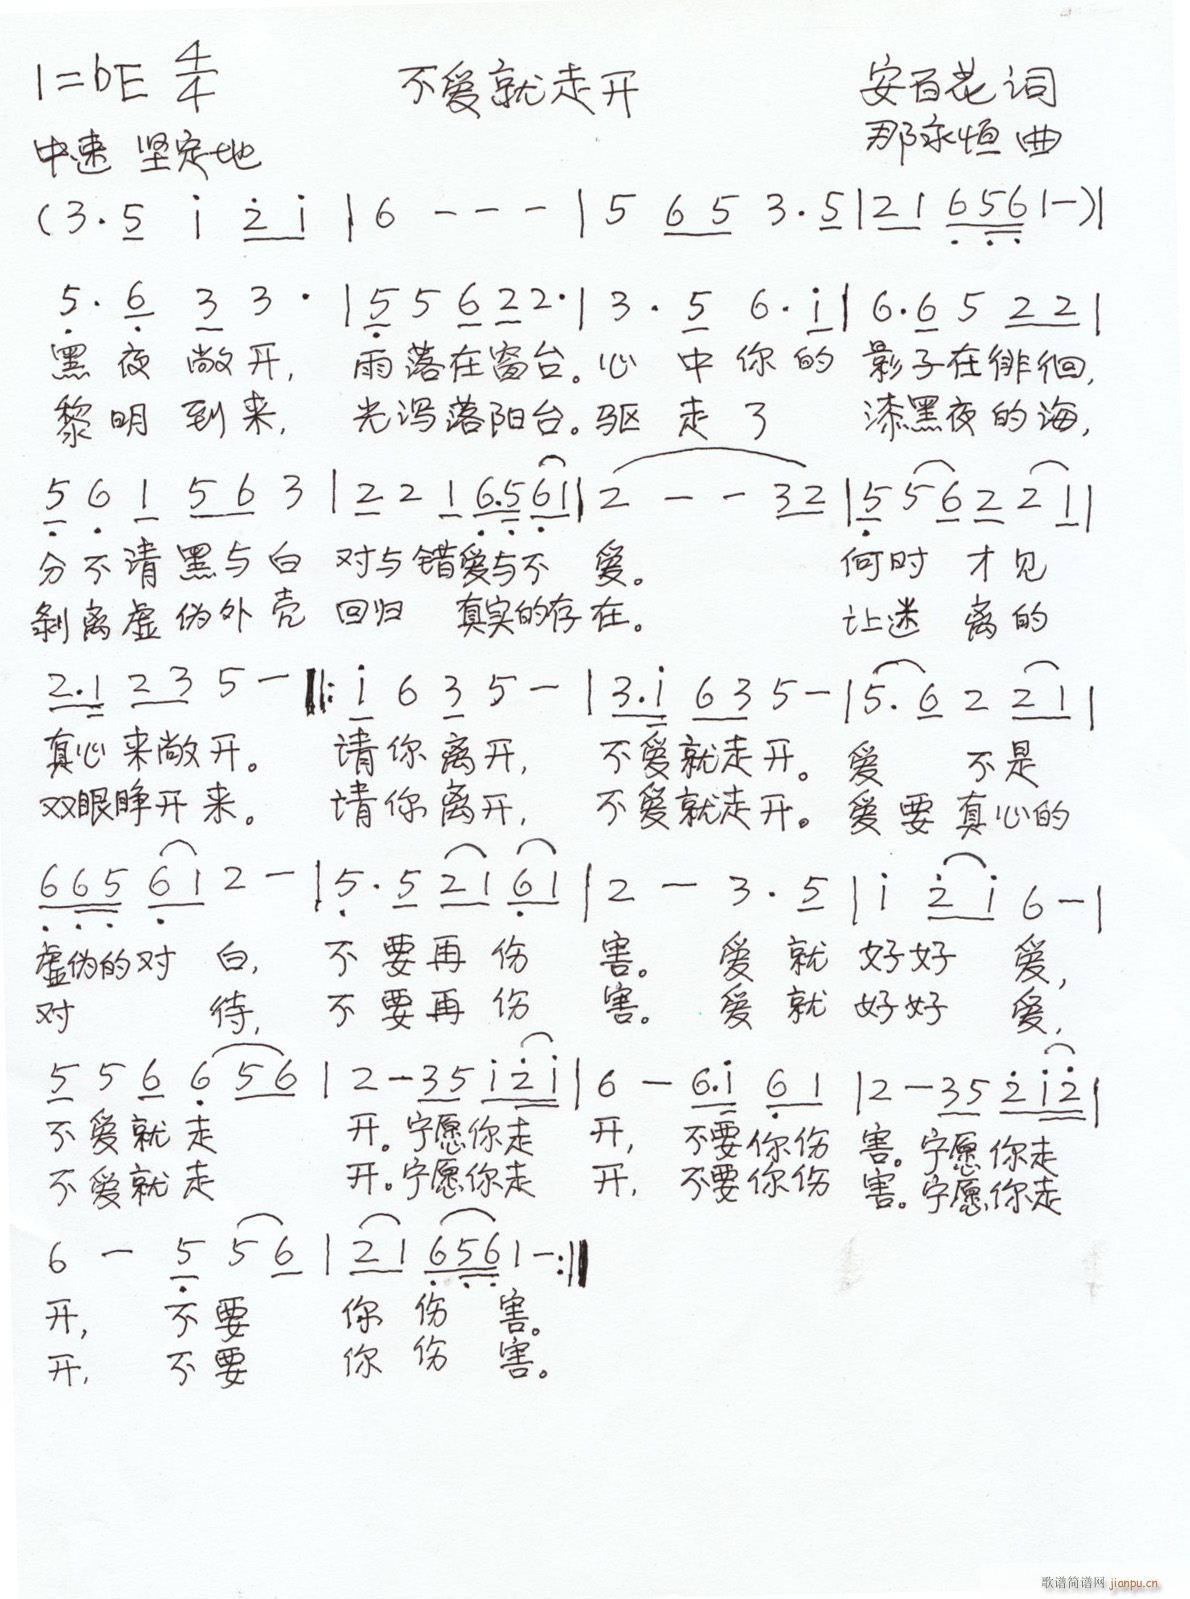 1=bE 4/4 不爱就走开 安百花词
中速 坚定地 那永恒曲
(3·5 i 2i | 6 - - - | 5 65 3·5 | 21 656 1-)|
5·6 3 3· | 5 5 6 2 2· | 3·5 6·i | 6·6 5 22 |
黑夜敞开, 雨落在窗台。心中你的 影子在徘徊,
黎明到来, 光泻落阳台。驱走了 漆黑夜的海,
5 6 1 56 3 | 2 2 1 6·5 61 | 2 - - 32 | 5 5 6 2 2 1 |
分不清黑与白 对与错爱与不 爱。 何时才见
剥离虚伪外壳 回归 真实的存在。 让迷离的
2·1 23 5 - ‖: i 6 3 5 - | 3·i 63 5 - | 5·6 2 21 |
真心来敞开。 请你离开, 不爱就走开。爱 不是
双眼睁开来。 请你离开, 不爱就走开。爱要真心的
665 61 2 - | 5·5 21 61 | 2 - 3·5 | i 2i 6 - |
虚伪的对 白, 不要再伤 害。 爱就好好 爱,
对 待, 不要再伤 害。 爱就好好 爱,
5 5 6 6 56 | 2 - 35 i2i | 6 - 6·i 61 | 2 - 35 2i2 |
不爱就走 开。宁愿你走 开, 不要你伤 害。宁愿你走
不爱就走 开。宁愿你走 开, 不要你伤 害。宁愿你走
6 - 5 5 6 | 21 656 1 - :‖
开, 不要 你伤 害。
开, 不要 你伤 害。
歌谱简谱网 jianpu.cn